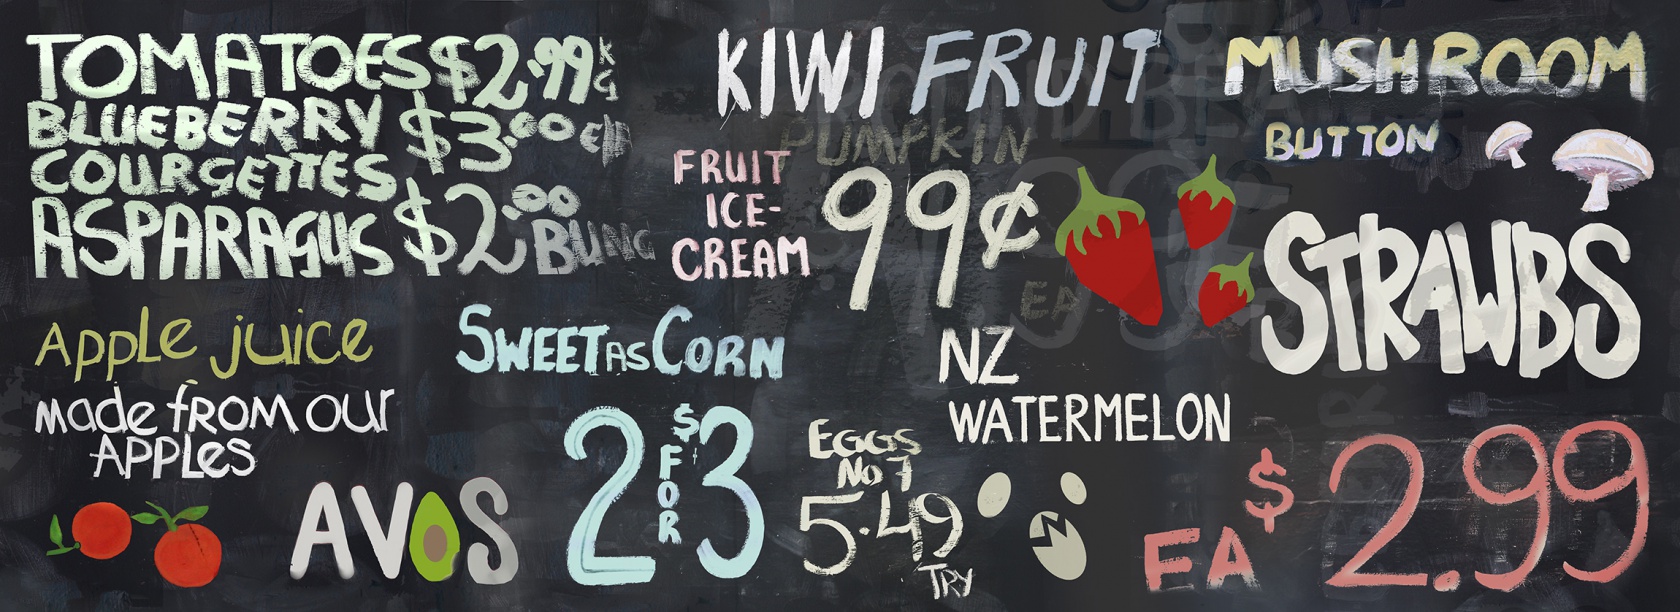 TOMATOES $2.99 KG
BLUEBERRY $3.00 EA
COURGETTES
ASPARAGUS $2.00 BUNG
KIWI FRUIT
PUMPKIN
FRUIT
ICE-
CREAM
99¢
EA
MUSHROOM
BUTTON
STRAWBS
Apple juice
made from our
APPLes
AVOS
SWEET AS CORN
2 FOR $3
EGGS
No 7
5.49
TRY
NZ
WATERMELON
EA $2.99